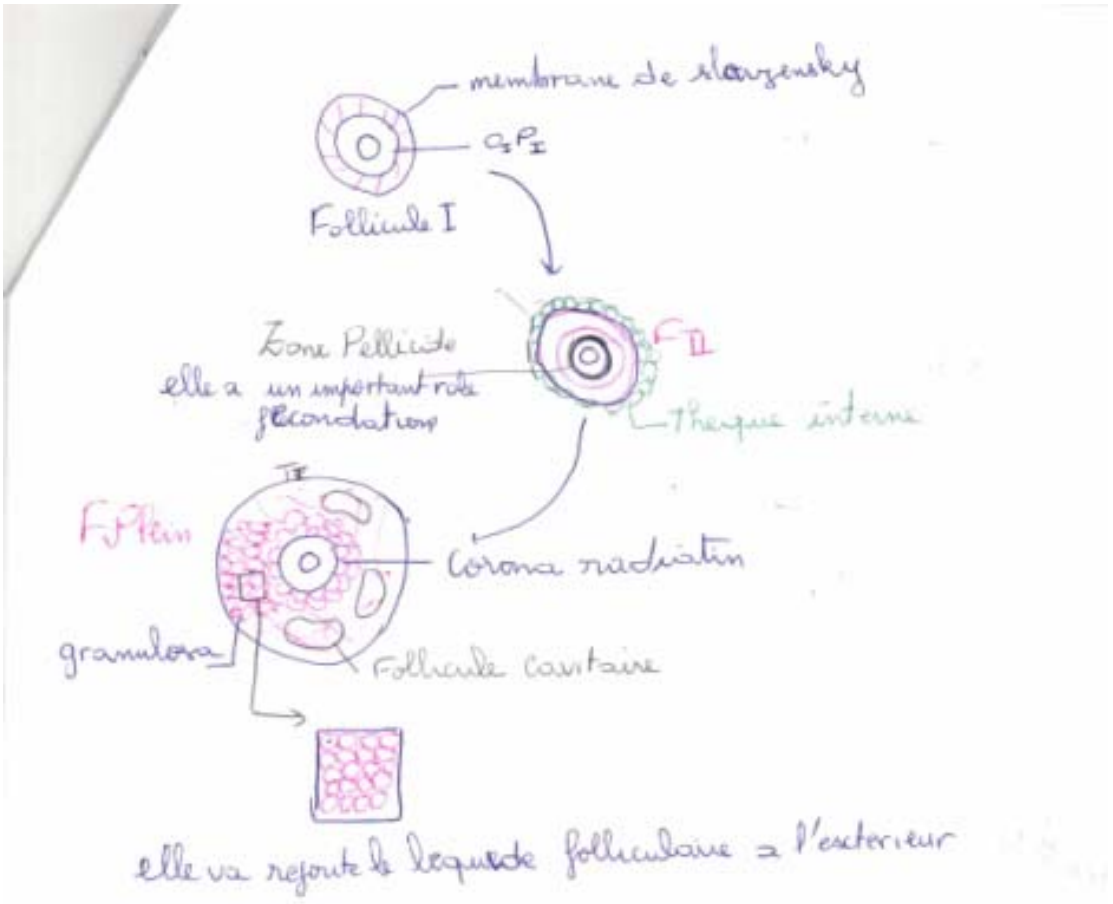 membrane de slavzensky
O₁P₁
Follicule I
Zone Pellicide
elle a un important role
fécondations
F II
Theque interne
III
F. Plein
Corona radiatin
granulosa
Follicule Cavitaire
elle va rejoute le liquide folliculaire a l'exterieur